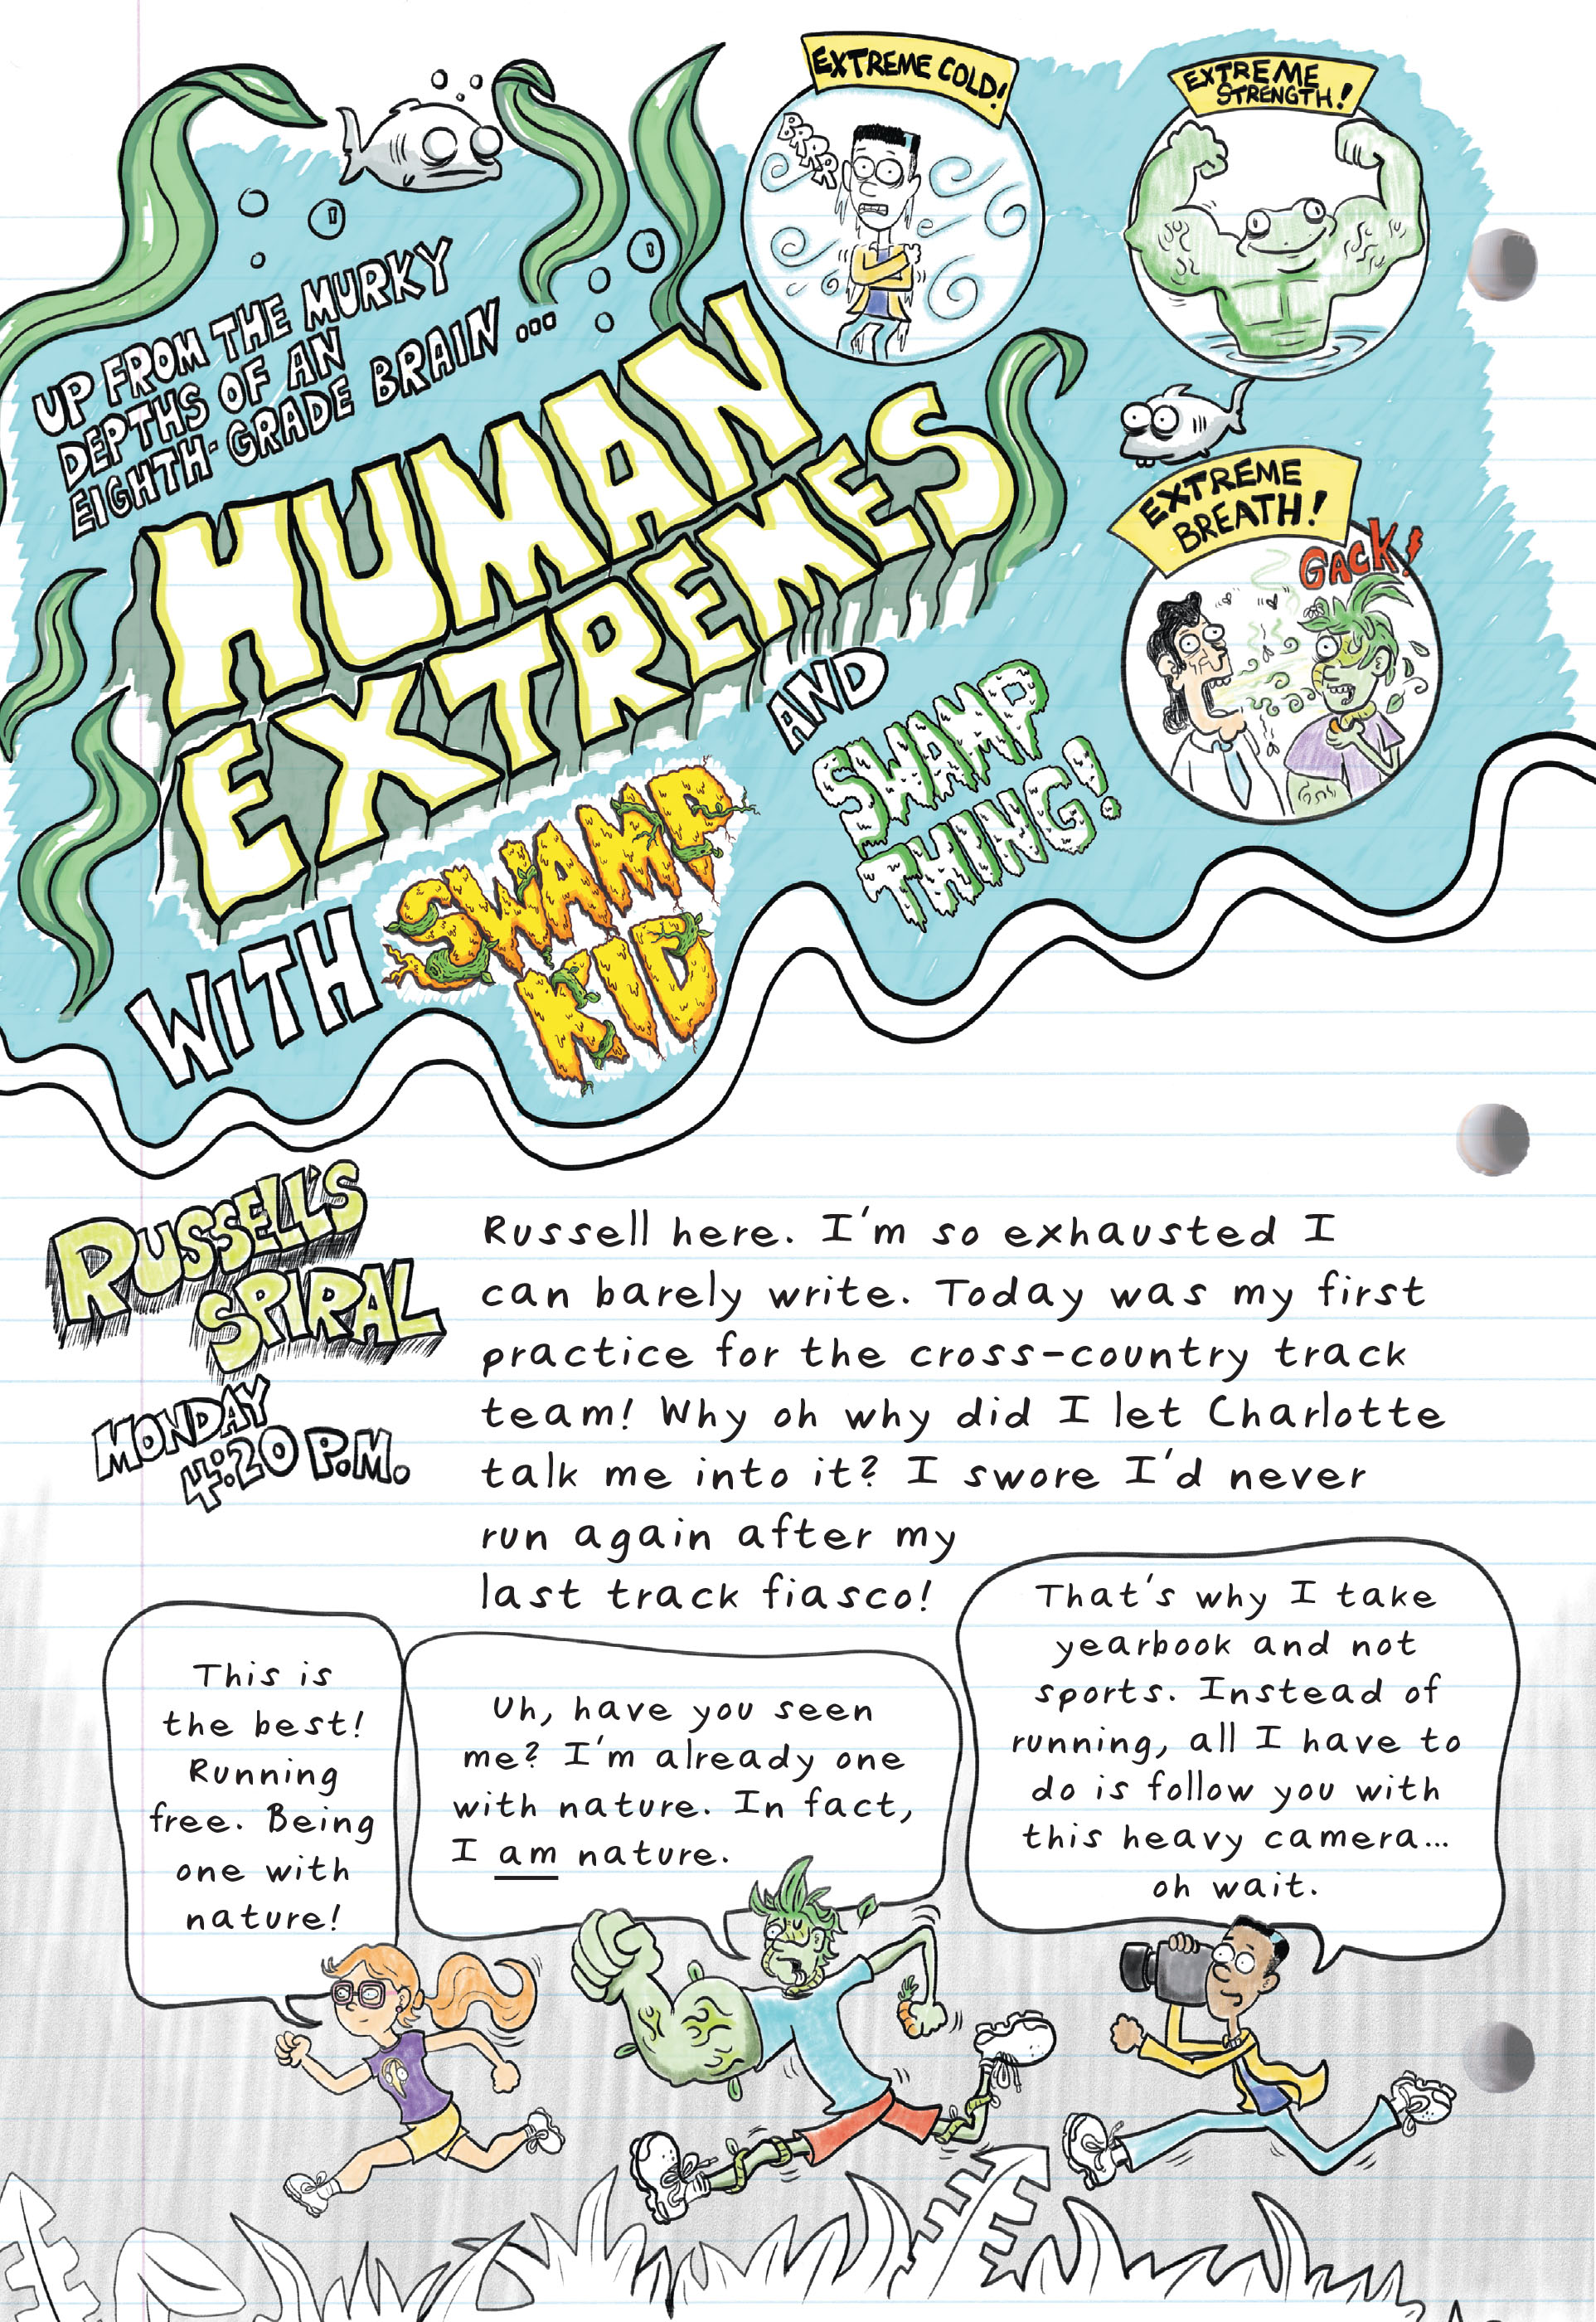 UP FROM THE MURKY
DEPTHS OF AN
EIGHTH-GRADE BRAIN...
HUMAN
EXTREMES
WITH
SWAMP
KID
AND
SWAMP
THING!
EXTREME COLD!
BRRR
EXTREME
STRENGTH!
EXTREME
BREATH!
GACK!
RUSSELL'S
SPIRAL
MONDAY
4:20 P.M.
Russell here. I'm so exhausted I
can barely write. Today was my first
practice for the cross-country track
team! Why oh why did I let Charlotte
talk me into it? I swore I'd never
run again after my
last track fiasco!
This is
the best!
Running
free. Being
one with
nature!
Uh, have you seen
me? I'm already one
with nature. In fact,
I am nature.
That's why I take
yearbook and not
sports. Instead of
running, all I have to
do is follow you with
this heavy camera...
oh wait.